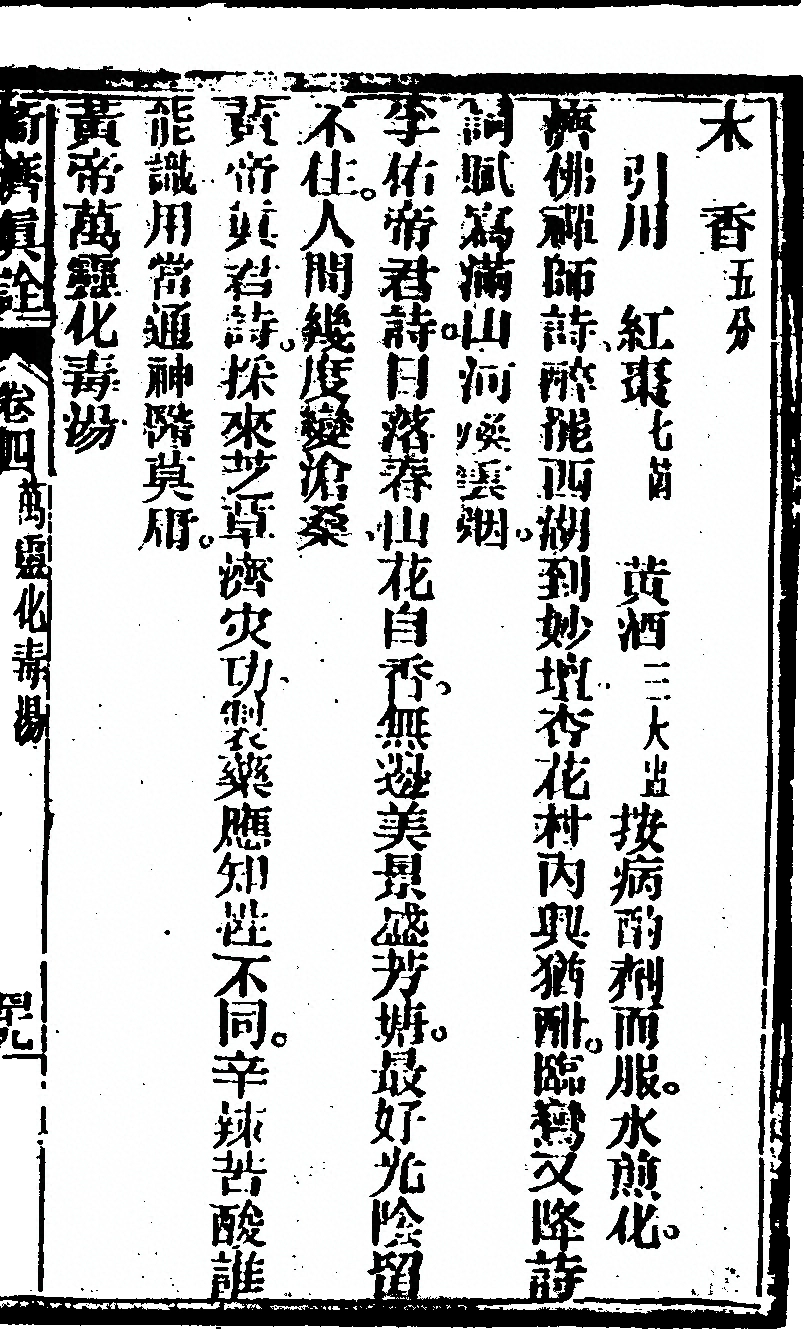 木　香五分
引用　紅棗七茼　黄酒三大盅　按病酌剤而服。水煎化。
濟佛禪師詩、醉罷西湖到妙壇、杏花村內興猶酣。臨鸞又降詩
詞賦、寫滿山河喚雲烟。
李佑帝君詩。日落春山花自香。無邊美景盛芳塘。最好光陰留
不住。人間幾度變滄桑、
黃帝真君詩。採來芝草濟灾功、製藥應知性不同。辛辣苦酸誰
能識用當通神隲莫用。
黃帝萬靈化毒湯
濟真詮　卷四　萬靈化毒湯　四九